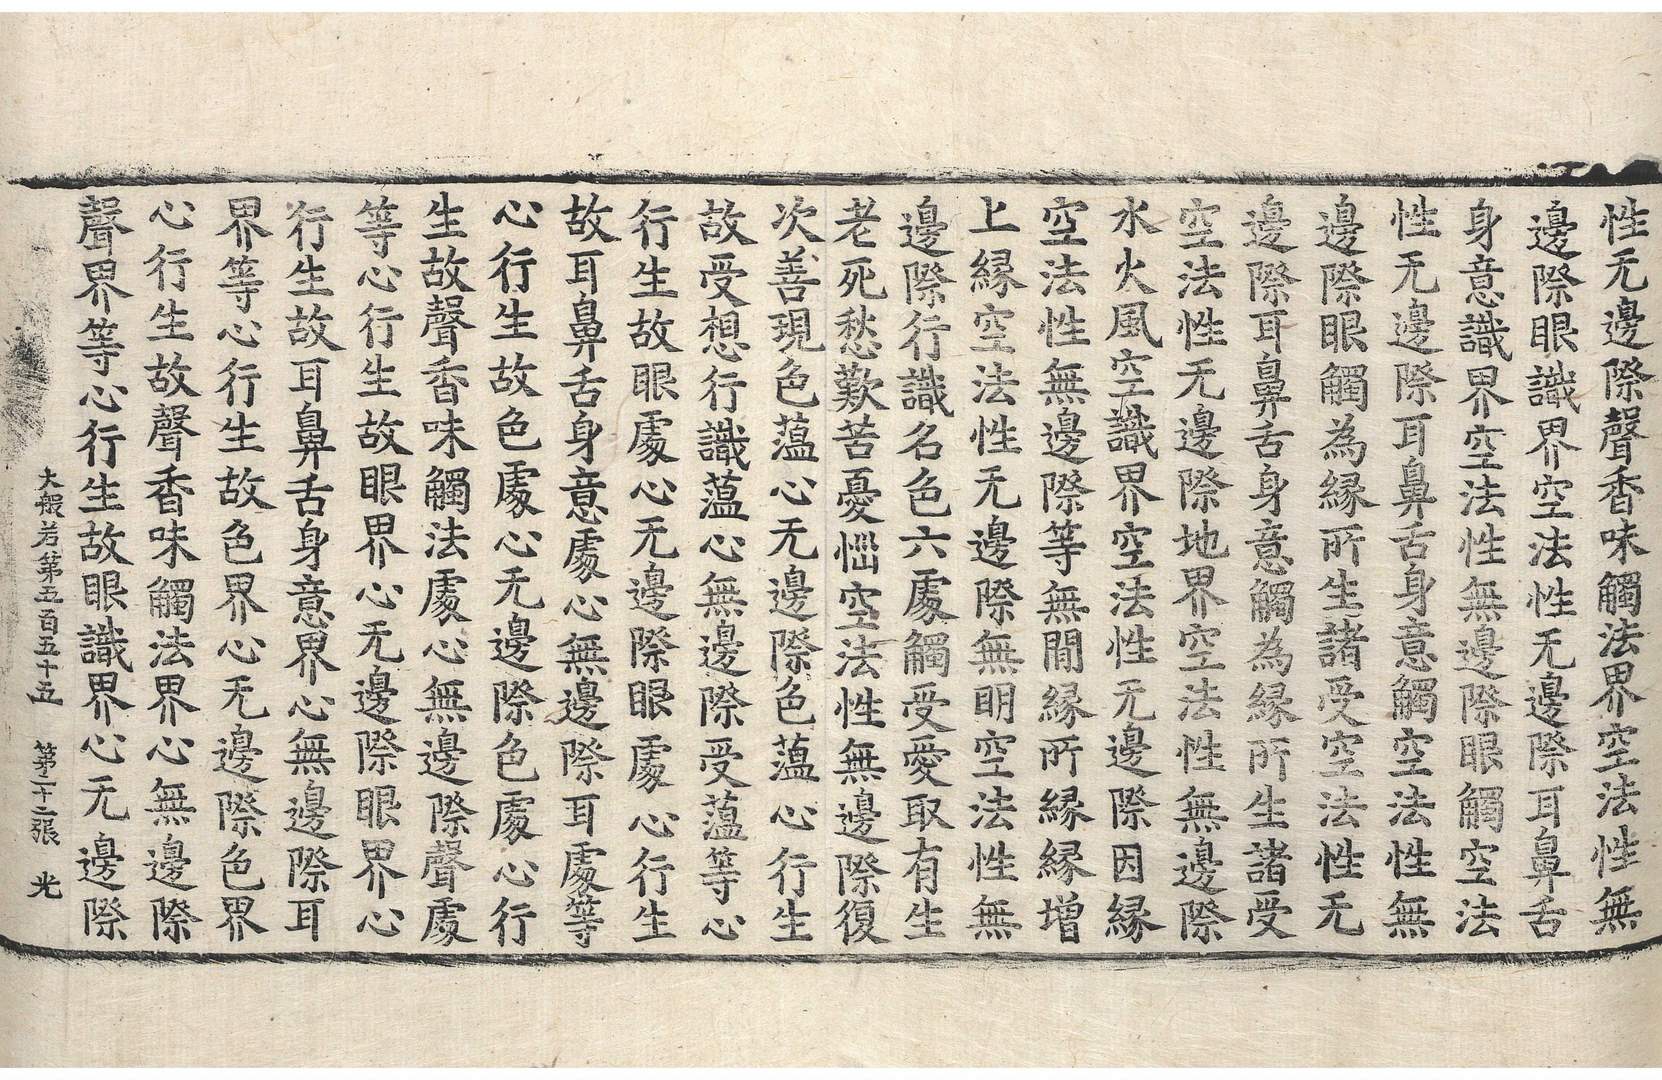 性无邊際聲香味觸法界空法性無
邊際眼識界空法性无邊際耳鼻舌
身意識界空法性無邊際眼觸空法
性无邊際耳鼻舌身意觸空法性無
邊際眼觸為縁所生諸受空法性无
邊際耳鼻舌身意觸為縁所生諸受
空法性无邊際地界空法性無邊際
水火風空識界空法性无邊際因縁
空法性無邊際等無間縁所縁縁增
上縁空法性无邊際無明空法性無
邊際行識名色六處觸受愛取有生
老死愁歎苦憂惱空法性無邊際復
次善現色薀心无邊際色薀心行生
故受想行識薀心無邊際受薀等心
行生故眼處心无邊際眼處心行生
故耳鼻舌身意處心無邊際耳處等
心行生故色處心无邊際色處心行
生故聲香味觸法處心無邊際聲處
等心行生故眼界心无邊際眼界心
行生故耳鼻舌身意界心無邊際耳
界等心行生故色界心无邊際色界
心行生故聲香味觸法界心無邊際
聲界等心行生故眼識界心无邊際
大般若第五百五十五 第二十二張 光